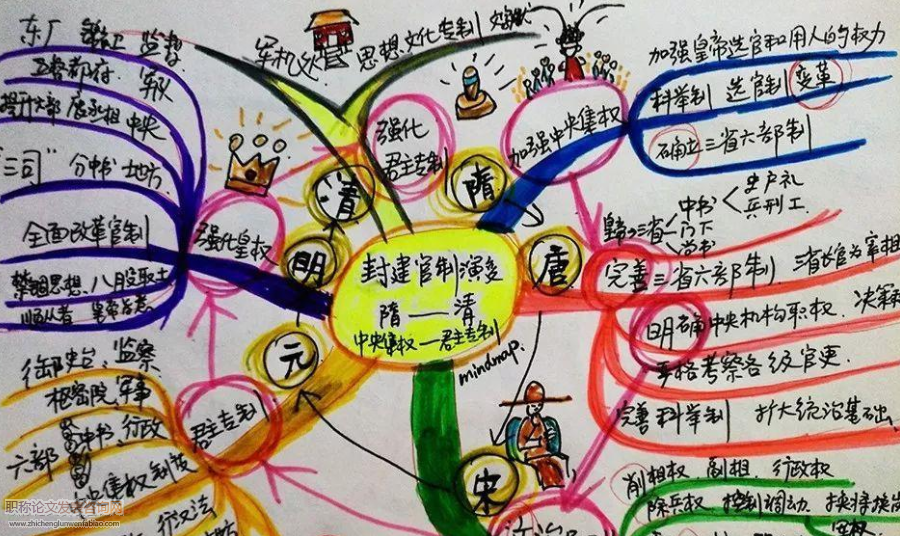 封建官制演变
隋——清
中央集权—君主专制
mindmap.
隋
加强中央集权
加强皇帝选官和用人的权力
科举制 选官制 变革
确立三省六部制
唐
完善三省六部制
三省
中书
门下
尚书
吏户礼
兵刑工
三省长官为宰相
明确中央机构职权
决策
严格考察各级官吏.
完善科举制 扩大统治基础
宋
削相权 副相 行政权
除兵权 控制调动
军权
元
君主专制
御史台、监察
枢密院、军事
中书、行政
六部
中央集权
行政
明
强化皇权
东厂 监督
五督都府、军队
提升六部 废丞相 中央
"三司" 分中书 地方
全面改革官制
禁锢思想、八股取士
顺从者
清
强化
君主专制
军机处
思想文化专制 文字狱
职称论文发表咨询网
www.zhichenglunwenfabiao.com